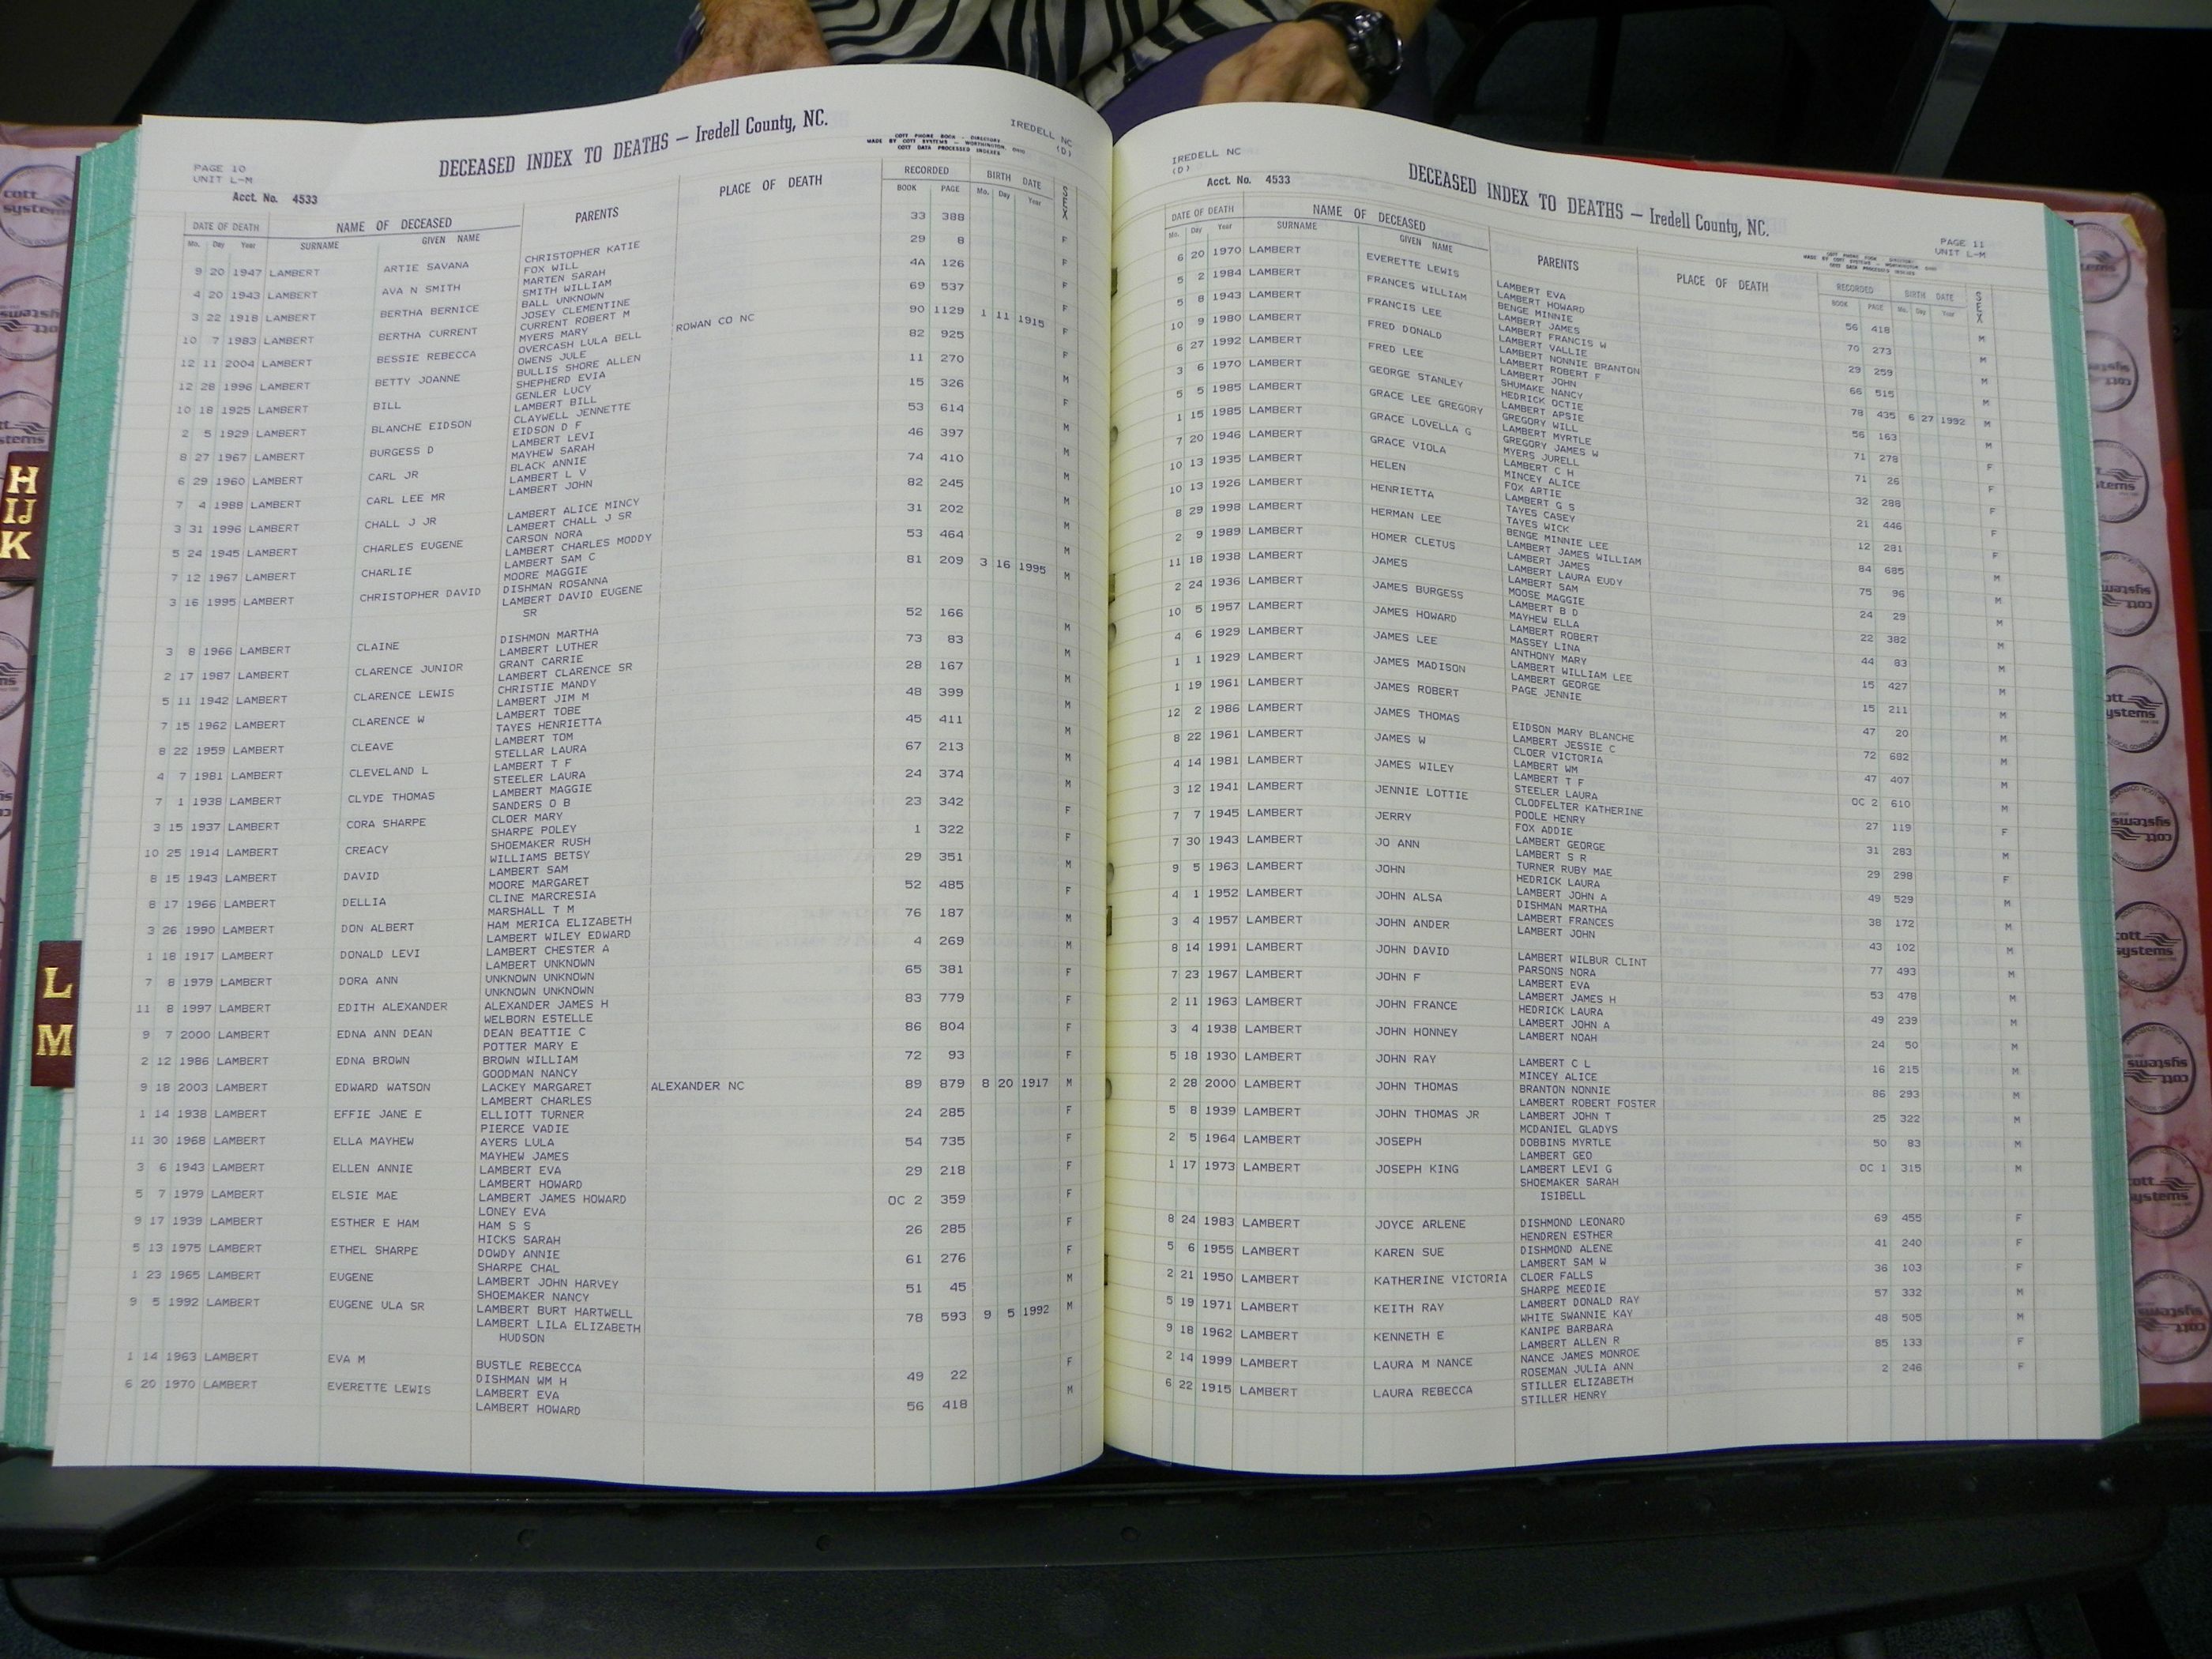 DECEASED INDEX TO DEATHS — Iredell County, NC.
IREDELL NC
(D)
COTT PHONE BOOK - DIRECTORY
MADE BY COTT SYSTEMS — WORTHINGTON, OHIO
COTT DATA PROCESSED INDEXES
PAGE 10
UNIT L-M
Acct. No. 4533
DATE OF DEATH NAME OF DECEASED PARENTS PLACE OF DEATH RECORDED BIRTH DATE SEX
Mo. Day Year SURNAME GIVEN NAME BOOK PAGE Mo. Day Year
9 20 1947 LAMBERT ARTIE SAVANA CHRISTOPHER KATIE 33 388 F
FOX WILL
4 20 1943 LAMBERT AVA N SMITH MARTEN SARAH 29 8 F
SMITH WILLIAM
3 22 1918 LAMBERT BERTHA BERNICE BALL UNKNOWN 4A 126 F
JOSEY CLEMENTINE
10 7 1983 LAMBERT BERTHA CURRENT CURRENT ROBERT M 69 537 F
MYERS MARY
12 11 2004 LAMBERT BESSIE REBECCA OVERCASH LULA BELL ROWAN CO NC 90 1129 1 11 1915 F
OWENS JULE
12 28 1996 LAMBERT BETTY JOANNE BULLIS SHORE ALLEN 82 925 F
SHEPHERD EVIA
10 18 1925 LAMBERT BILL GENLER LUCY 11 270 M
LAMBERT BILL
2 5 1929 LAMBERT BLANCHE EIDSON CLAYWELL JENNETTE 15 326 F
EIDSON D F
8 27 1967 LAMBERT BURGESS D LAMBERT LEVI 53 614 M
MAYHEW SARAH
6 29 1960 LAMBERT CARL JR BLACK ANNIE 46 397 M
LAMBERT L V
7 4 1988 LAMBERT CARL LEE MR LAMBERT JOHN 74 410 M
3 31 1996 LAMBERT CHALL J JR LAMBERT ALICE MINCY 82 245 M
LAMBERT CHALL J SR
5 24 1945 LAMBERT CHARLES EUGENE CARSON NORA 31 202 M
LAMBERT CHARLES MODDY
7 12 1967 LAMBERT CHARLIE LAMBERT SAM C 53 464 M
MOORE MAGGIE
3 16 1995 LAMBERT CHRISTOPHER DAVID DISHMAN ROSANNA 81 209 3 16 1995 M
LAMBERT DAVID EUGENE
SR
3 8 1966 LAMBERT CLAINE DISHMON MARTHA 52 166 M
LAMBERT LUTHER
2 17 1987 LAMBERT CLARENCE JUNIOR GRANT CARRIE 73 83 M
LAMBERT CLARENCE SR
5 11 1942 LAMBERT CLARENCE LEWIS CHRISTIE MANDY 28 167 M
LAMBERT JIM M
7 15 1962 LAMBERT CLARENCE W LAMBERT TOBE 48 399 M
TAYES HENRIETTA
8 22 1959 LAMBERT CLEAVE LAMBERT TOM 45 411 M
STELLAR LAURA
4 7 1981 LAMBERT CLEVELAND L LAMBERT T F 67 213 M
STEELER LAURA
7 1 1938 LAMBERT CLYDE THOMAS LAMBERT MAGGIE 24 374 M
SANDERS O B
3 15 1937 LAMBERT CORA SHARPE CLOER MARY 23 342 F
SHARPE POLEY
10 25 1914 LAMBERT CREACY SHOEMAKER RUSH 1 322 F
WILLIAMS BETSY
8 15 1943 LAMBERT DAVID LAMBERT SAM 29 351 M
MOORE MARGARET
8 17 1966 LAMBERT DELLIA CLINE MARCRESIA 52 485 F
MARSHALL T M
3 26 1990 LAMBERT DON ALBERT HAM MERICA ELIZABETH 76 187 M
LAMBERT WILEY EDWARD
1 18 1917 LAMBERT DONALD LEVI LAMBERT CHESTER A 4 269 M
LAMBERT UNKNOWN
7 8 1979 LAMBERT DORA ANN UNKNOWN UNKNOWN 65 381 F
UNKNOWN UNKNOWN
11 8 1997 LAMBERT EDITH ALEXANDER ALEXANDER JAMES H 83 779 F
WELBORN ESTELLE
9 7 2000 LAMBERT EDNA ANN DEAN DEAN BEATTIE C 86 804 F
POTTER MARY E
2 12 1986 LAMBERT EDNA BROWN BROWN WILLIAM 72 93 F
GOODMAN NANCY
9 18 2003 LAMBERT EDWARD WATSON LACKEY MARGARET ALEXANDER NC 89 879 8 20 1917 M
LAMBERT CHARLES
1 14 1938 LAMBERT EFFIE JANE E ELLIOTT TURNER 24 285 F
PIERCE VADIE
11 30 1968 LAMBERT ELLA MAYHEW AYERS LULA 54 735 F
MAYHEW JAMES
3 6 1943 LAMBERT ELLEN ANNIE LAMBERT EVA 29 218 F
LAMBERT HOWARD
5 7 1979 LAMBERT ELSIE MAE LAMBERT JAMES HOWARD OC 2 359 F
LONEY EVA
9 17 1939 LAMBERT ESTHER E HAM HAM S S 26 285 F
HICKS SARAH
5 13 1975 LAMBERT ETHEL SHARPE DOWDY ANNIE 61 276 F
SHARPE CHAL
1 23 1965 LAMBERT EUGENE LAMBERT JOHN HARVEY 51 45 M
SHOEMAKER NANCY
9 5 1992 LAMBERT EUGENE ULA SR LAMBERT BURT HARTWELL 78 593 9 5 1992 M
LAMBERT LILA ELIZABETH
HUDSON
1 14 1963 LAMBERT EVA M BUSTLE REBECCA 49 22 F
DISHMAN WM H
6 20 1970 LAMBERT EVERETTE LEWIS LAMBERT EVA 56 418 M
LAMBERT HOWARD
IREDELL NC
(D)
Acct. No. 4533
DECEASED INDEX TO DEATHS — Iredell County, NC.
PAGE 11
UNIT L-M
DATE OF DEATH NAME OF DECEASED PARENTS PLACE OF DEATH RECORDED BIRTH DATE SEX
Mo. Day Year SURNAME GIVEN NAME BOOK PAGE Mo. Day Year
6 20 1970 LAMBERT EVERETTE LEWIS LAMBERT EVA 56 418 M
LAMBERT HOWARD
5 2 1984 LAMBERT FRANCES WILLIAM BENGE MINNIE 70 273 M
LAMBERT JAMES
5 8 1943 LAMBERT FRANCIS LEE LAMBERT FRANCIS W 29 259 M
LAMBERT VALLIE
10 9 1980 LAMBERT FRED DONALD LAMBERT NONNIE BRANTON 66 515 M
LAMBERT ROBERT F
6 27 1992 LAMBERT FRED LEE LAMBERT JOHN 78 435 6 27 1992 M
SHUMAKE NANCY
3 6 1970 LAMBERT GEORGE STANLEY HEDRICK OCTIE 56 163 M
LAMBERT APSIE
5 5 1985 LAMBERT GRACE LEE GREGORY GREGORY WILL 71 278 F
LAMBERT MYRTLE
1 15 1985 LAMBERT GRACE LOVELLA G GREGORY JAMES W 71 26 F
MYERS JURELL
7 20 1946 LAMBERT GRACE VIOLA LAMBERT C H 32 288 F
MINCEY ALICE
10 13 1935 LAMBERT HELEN FOX ARTIE 21 446 F
LAMBERT G S
10 13 1926 LAMBERT HENRIETTA TAYES CASEY 12 281
TAYES WICK
8 29 1998 LAMBERT HERMAN LEE BENGE MINNIE LEE 84 685 M
LAMBERT JAMES WILLIAM
2 9 1989 LAMBERT HOMER CLETUS LAMBERT JAMES 75 96 M
LAMBERT LAURA EUDY
11 18 1938 LAMBERT JAMES LAMBERT SAM 24 29 M
MOOSE MAGGIE
2 24 1936 LAMBERT JAMES BURGESS LAMBERT B D 22 382 M
MAYHEW ELLA
10 5 1957 LAMBERT JAMES HOWARD LAMBERT ROBERT 44 83 M
MASSEY LINA
4 6 1929 LAMBERT JAMES LEE ANTHONY MARY 15 427 M
LAMBERT WILLIAM LEE
1 1 1929 LAMBERT JAMES MADISON LAMBERT GEORGE 15 211 M
PAGE JENNIE
1 19 1961 LAMBERT JAMES ROBERT 47 20 M
12 2 1986 LAMBERT JAMES THOMAS EIDSON MARY BLANCHE 72 682 M
LAMBERT JESSIE C
8 22 1961 LAMBERT JAMES W CLOER VICTORIA 47 407 M
LAMBERT WM
4 14 1981 LAMBERT JAMES WILEY LAMBERT T F OC 2 610 M
STEELER LAURA
3 12 1941 LAMBERT JENNIE LOTTIE CLODFELTER KATHERINE 27 119 F
POOLE HENRY
7 7 1945 LAMBERT JERRY FOX ADDIE 31 283 M
LAMBERT GEORGE
7 30 1943 LAMBERT JO ANN LAMBERT S R 29 298 F
TURNER RUBY MAE
9 5 1963 LAMBERT JOHN HEDRICK LAURA 49 529 M
LAMBERT JOHN A
4 1 1952 LAMBERT JOHN ALSA DISHMAN MARTHA 38 172 M
LAMBERT FRANCES
3 4 1957 LAMBERT JOHN ANDER LAMBERT JOHN 43 102 M
8 14 1991 LAMBERT JOHN DAVID LAMBERT WILBUR CLINT 77 493 M
PARSONS NORA
7 23 1967 LAMBERT JOHN F LAMBERT EVA 53 478 M
LAMBERT JAMES H
2 11 1963 LAMBERT JOHN FRANCE HEDRICK LAURA 49 239 M
LAMBERT JOHN A
3 4 1938 LAMBERT JOHN HONNEY LAMBERT NOAH 24 50 M
5 18 1930 LAMBERT JOHN RAY LAMBERT C L 16 215 M
MINCEY ALICE
2 28 2000 LAMBERT JOHN THOMAS BRANTON NONNIE 86 293 M
LAMBERT ROBERT FOSTER
5 8 1939 LAMBERT JOHN THOMAS JR LAMBERT JOHN T 25 322 M
MCDANIEL GLADYS
2 5 1964 LAMBERT JOSEPH DOBBINS MYRTLE 50 83 M
LAMBERT GEO
1 17 1973 LAMBERT JOSEPH KING LAMBERT LEVI G OC 1 315 M
SHOEMAKER SARAH
ISIBELL
8 24 1983 LAMBERT JOYCE ARLENE DISHMOND LEONARD 69 455 F
HENDREN ESTHER
5 6 1955 LAMBERT KAREN SUE DISHMOND ALENE 41 240 F
LAMBERT SAM W
2 21 1950 LAMBERT KATHERINE VICTORIA CLOER FALLS 36 103 F
SHARPE MEEDIE
5 19 1971 LAMBERT KEITH RAY LAMBERT DONALD RAY 57 332 M
WHITE SWANNIE KAY
9 18 1962 LAMBERT KENNETH E KANIPE BARBARA 48 505 M
LAMBERT ALLEN R
2 14 1999 LAMBERT LAURA M NANCE NANCE JAMES MONROE 85 133 F
ROSEMAN JULIA ANN
6 22 1915 LAMBERT LAURA REBECCA STILLER ELIZABETH 2 246 F
STILLER HENRY
H
IJ
K
L
M
cott systems